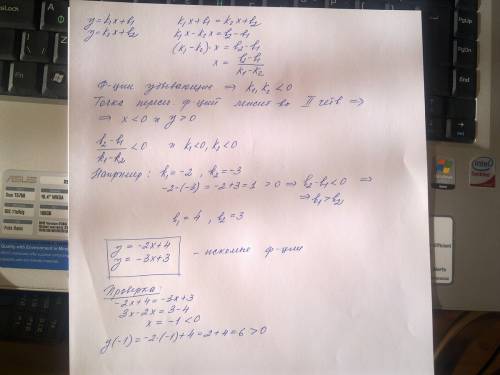 y=k₁x+b₁
y=k₂x+b₂
k₁x+b₁=k₂x+b₂
k₁x-k₂x=b₂-b₁
(k₁-k₂)·x=b₂-b₁
x = (b₂-b₁)/(k₁-k₂)
Ф-ции убывающие ⇒ k₁, k₂ < 0
Точка пересеч ф-ций лежит во II четв ⇒
⇒ x<0 и y>0
(b₂-b₁)/(k₁-k₂) <0 и k₁<0, k₂<0
Например: k₁=-2, k₂=-3
-2-(-3)=-2+3=1 >0 ⇒ b₂-b₁<0 ⇒
⇒ b₁>b₂
b₁=4, b₂=3
y=-2x+4
y=-3x+3
- искомые ф-ции
Проверка:
-2x+4=-3x+3
3x-2x=3-4
x=-1<0
y(-1)=-2·(-1)+4=2+4=6>0
ASUS
Windows
Intel
PgUp
PgDn
End